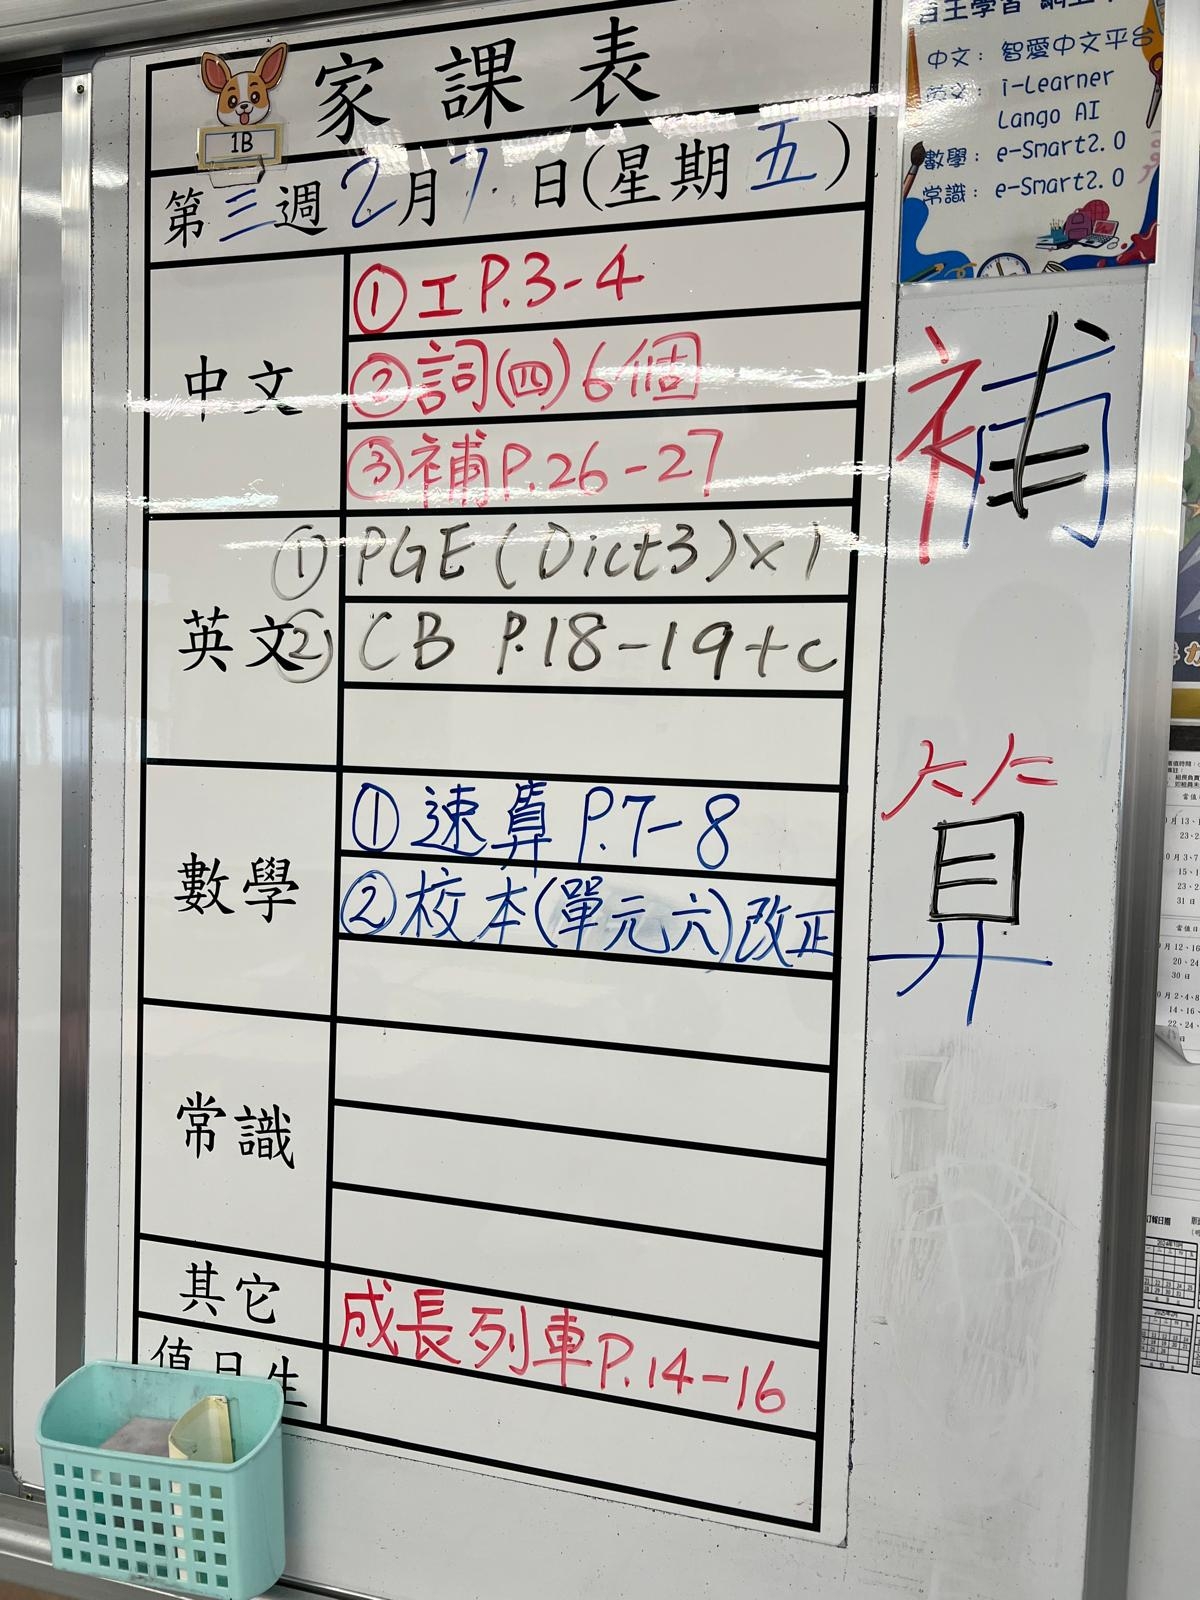 家課表
1B
第三週 2月7日(星期五)
中文
①工P.3-4
②詞(四)6個
③補P.26-27
英文
① PGE (Dict3)x1
② CB P.18-19+c
數學
① 速算 P.7-8
② 校本(單元六)改正
常識
其它
成長列車P.14-16
值日生
中文： 智愛中文平台
英文： i-Learner
Lango AI
數學： e-Smart2.0
常識： e-Smart2.0
補
算